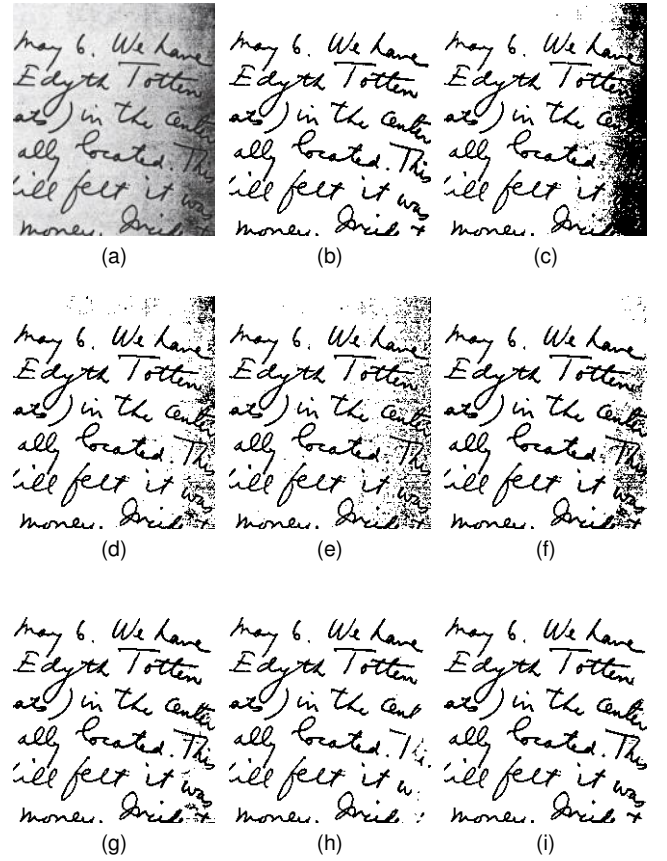 may 6. We have
Edyth Totten
ats) in the center
ally located. This
ill felt it was
money.
(a)
may 6. We have
Edyth Totten
ats) in the center
ally located. This
ill felt it was
money.
(b)
may 6. We have
Edyth Totten
ats) in the
ally located.
ill felt it
money.
(c)
may 6. We have
Edyth Totten
ats) in the center
ally located. This
ill felt it was
money.
(d)
may 6. We have
Edyth Totten
ats) in the center
ally located. This
ill felt it was
money.
(e)
may 6. We have
Edyth Totten
ats) in the center
ally located. This
ill felt it was
money.
(f)
may 6. We have
Edyth Totten
ats) in the center
ally located. This
ill felt it was
money.
(g)
may 6. We have
Edyth Totten
ats) in the cent
ally located.
ill felt it
money.
(h)
may 6. We have
Edyth Totten
ats) in the center
ally located. This
ill felt it was
money.
(i)